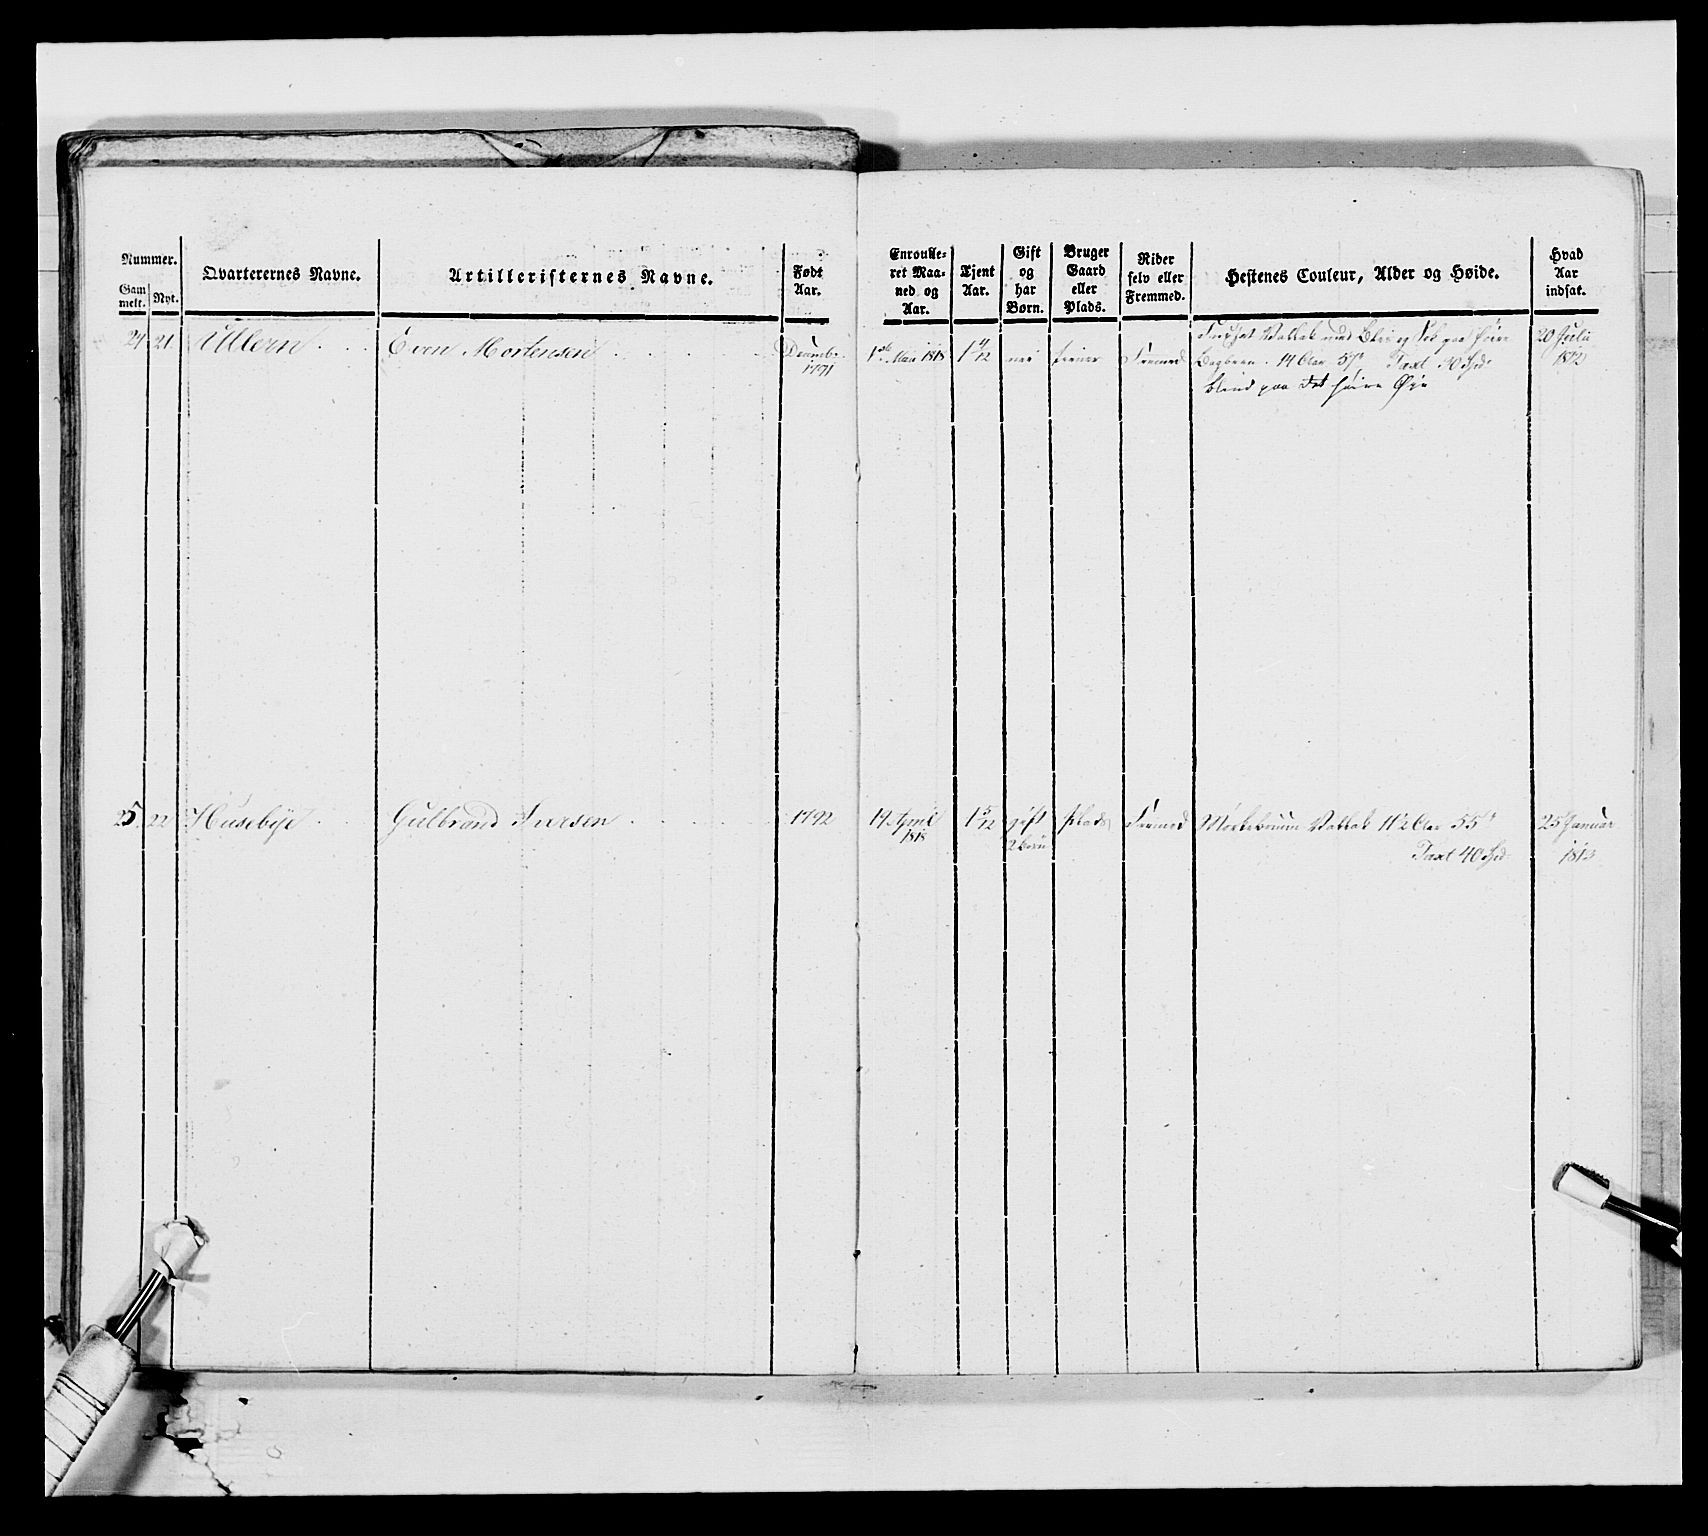 Nummer.
Gam
melt.
Nyt.
Qvarterernes Navne.
Artilleristernes Navne.
Født
Aar.
Enroulle-
ret Maa-
ned og
Aar.
Tjent
Aar.
Gift
og
har
Børn.
Bruger
Gaard
eller
Plads.
Rider
selv eller
Fremmed.
Hestenes Couleur, Alder og Høide.
Hvad
Aar
indsat.
24 21 Ullern
Even Mortensen
Decembr
1791
1ste Mai 1818
1 4/12
nei
tiener
Fremed
Vallak med Blis og
14 Aar Taxt
blind paa det høire Øje
20 Julii
1812
25 22 Husebye
Gulbrand Iversen
1792
14 April
1818
1 5/12
gift
2 børn
Plads
Fremed
Mørkebruun Vallak 11½ Aar 55"
Taxt 40 Spd
25 Januar
1813